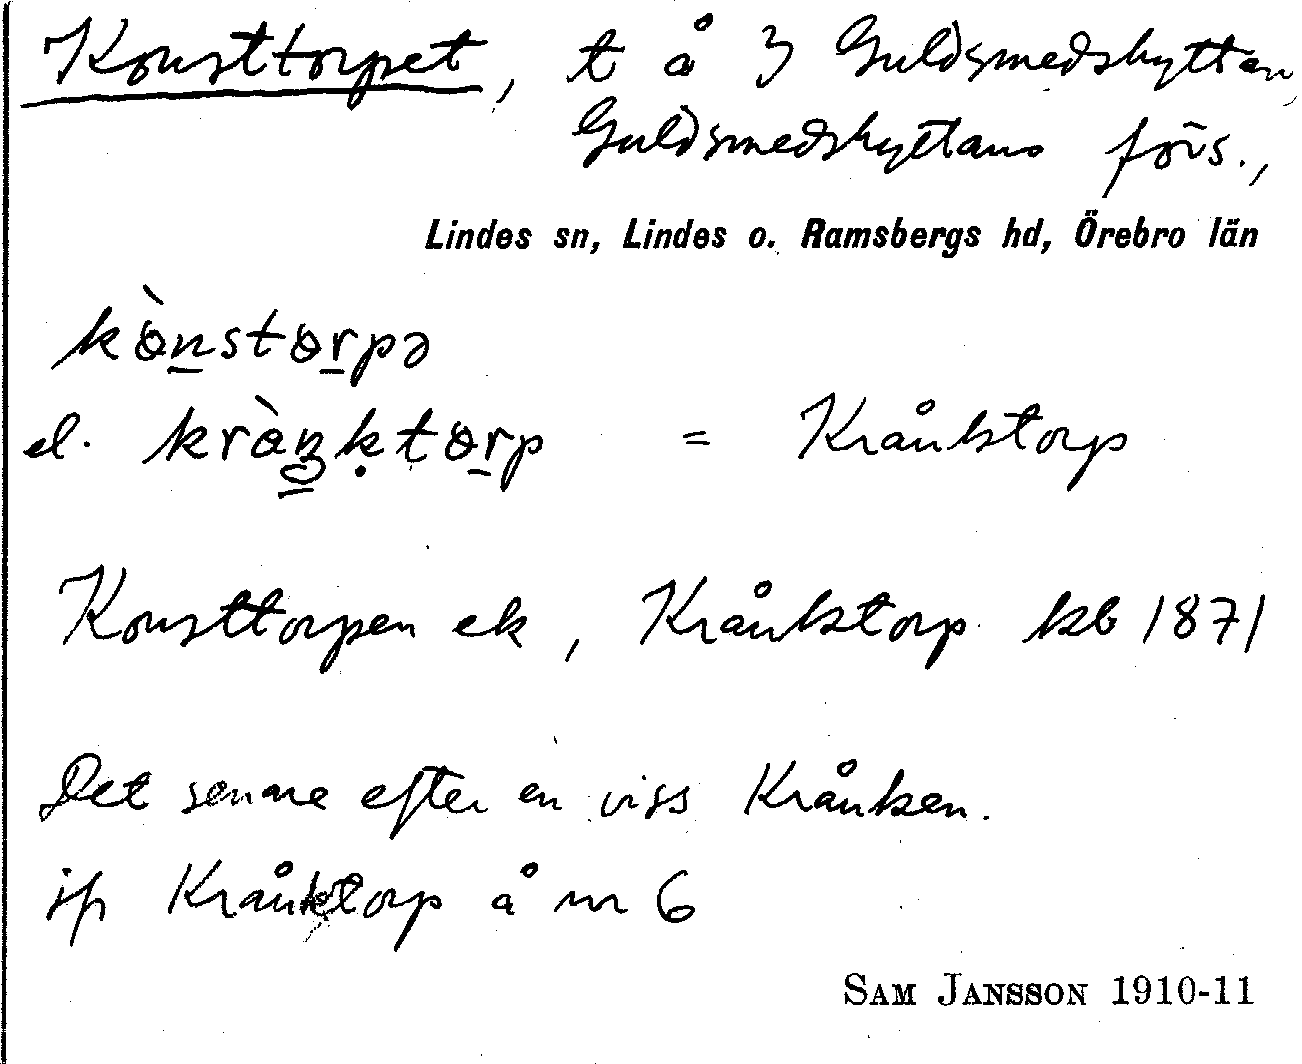 Konsttorpet, t å 3 Guldsmedshyttan,
Guldsmedshyttans förs.,
Lindes sn, Lindes o. Ramsbergs hd, Örebro län
el. = Krånktorp
Konsttorpen ek, Krånktorp kb 1871
Det senare efter en viss Krånken.
jfr Krånktorp å nr 6
SAM JANSSON 1910-11